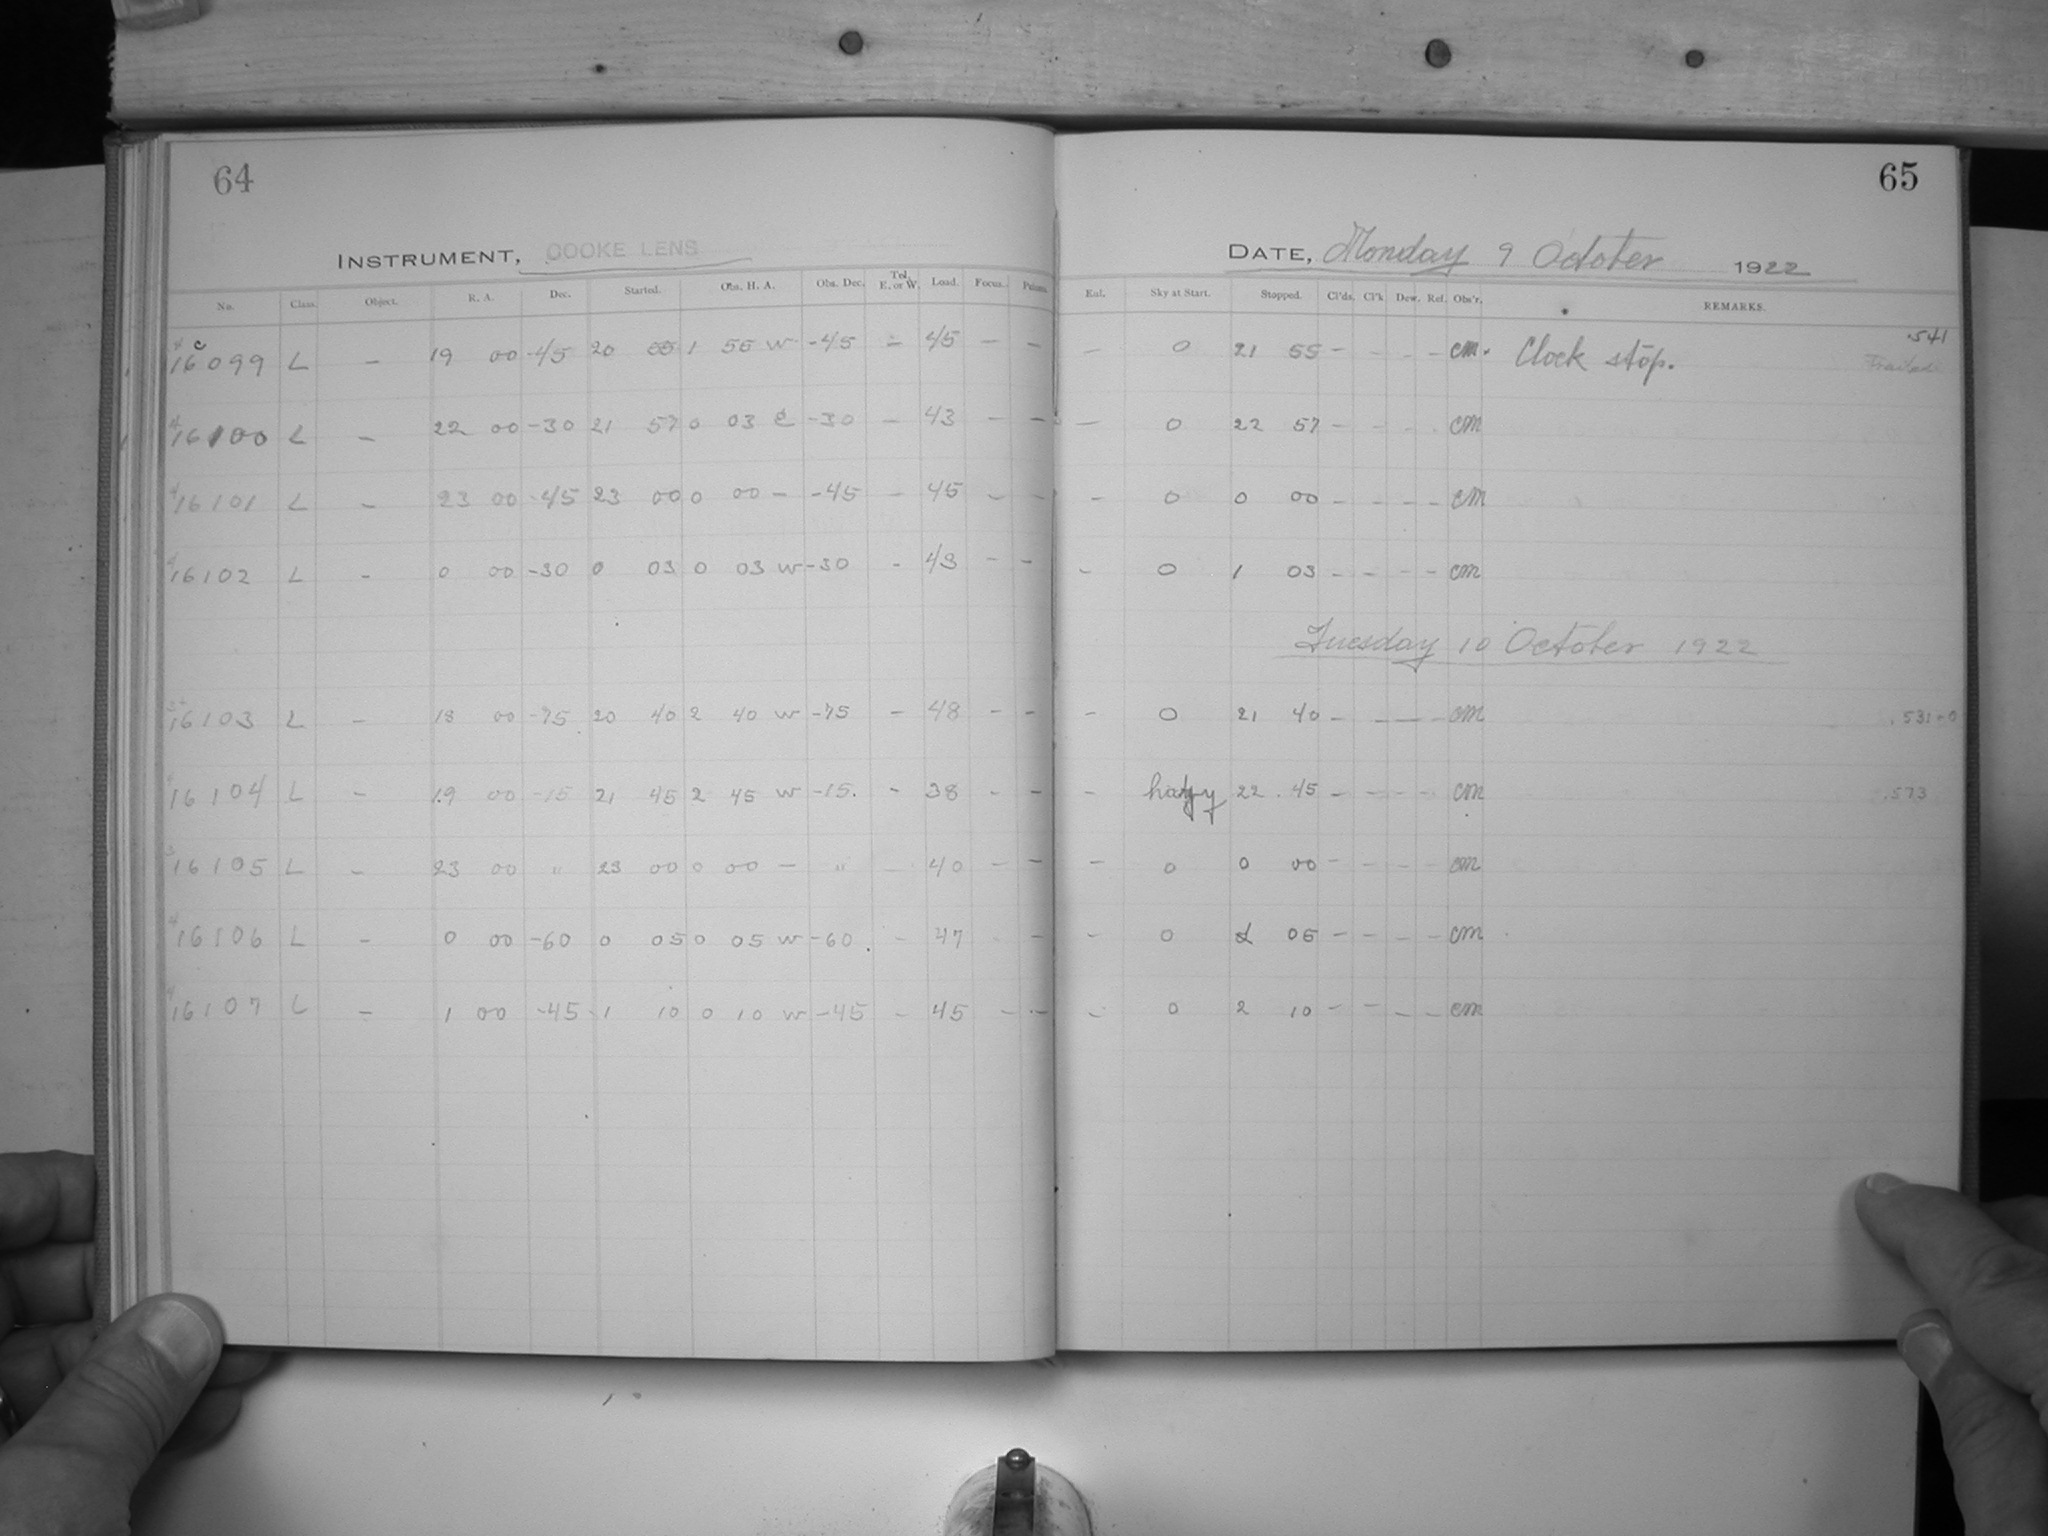 64
65
INSTRUMENT, COOKE LENS
DATE, Monday 9 October 1922
No. Class. Object. R. A. Dec. Started. Obs. H. A. Obs. Dec. Tel. E. or W. Load. Focus. Prisms. Eul. Sky at Start. Stopped. Cl'ds. Cl'k Dew. Ref. Obs'r. REMARKS.
16099 L - 19 00 -45 20 55 1 55 W -45 - 45 - - - 0 21 55 - - - - CM. Clock stop. .541
16100 L - 22 00 -30 21 57 0 03 E -30 - 43 - - - 0 22 57 - - - - CM
16101 L - 23 00 -45 23 00 0 00 - -45 - 45 - - - 0 0 00 - - - - CM
16102 L - 0 00 -30 0 03 0 03 W -30 - 43 - - - 0 1 03 - - - - CM
Tuesday 10 October 1922
16103 L - 18 00 -75 20 40 2 40 W -75 - 48 - - - 0 21 40 - - - - CM .531-0
16104 L - 19 00 -15 21 45 2 45 W -15. - 38 - - - hazy 22 45 - - - - CM .573
16105 L - 23 00 " 23 00 0 00 - " - 40 - - - 0 0 00 - - - - CM
16106 L - 0 00 -60 0 05 0 05 W -60 - 47 - - - 0 1 05 - - - - CM
16107 L - 1 00 -45 1 10 0 10 W -45 - 45 - - - 0 2 10 - - - - CM